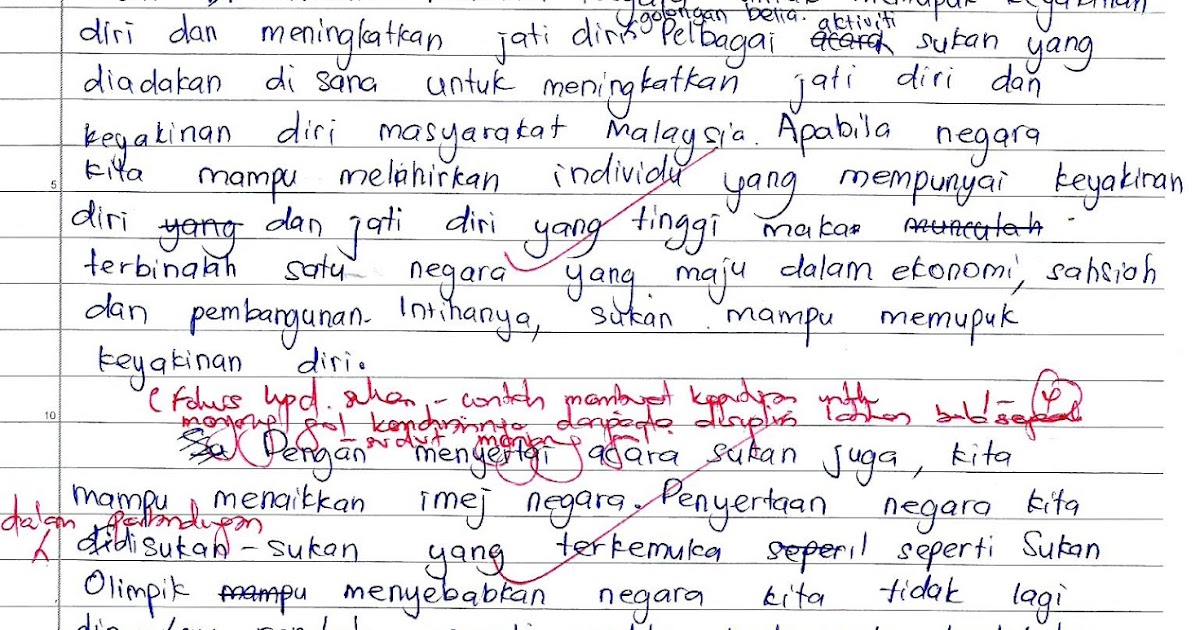 golongan belia. aktiviti
diri dan meningkatkan jati diri. Pelbagai acara sukan yang
diadakan di sana untuk meningkatkan jati diri dan
keyakinan diri masyarakat Malaysia. Apabila negara
5
kita mampu melahirkan individu yang mempunyai keyakinan
diri yang dan jati diri yang tinggi maka munculah
terbinalah satu negara yang maju dalam ekonomi, sahsiah
dan pembangunan. Intihanya, sukan mampu memupuk
keyakinan diri.
(Fokus kpd. sukan - contoh membuat
10
daripada disiplin latihan
Dengan menyertai acara sukan juga, kita
mampu menaikkan imej negara. Penyertaan negara kita
dalam pertandingan
disukan-sukan yang terkemuka seperil seperti Sukan
Olimpik mampu menyebabkan negara kita tidak lagi